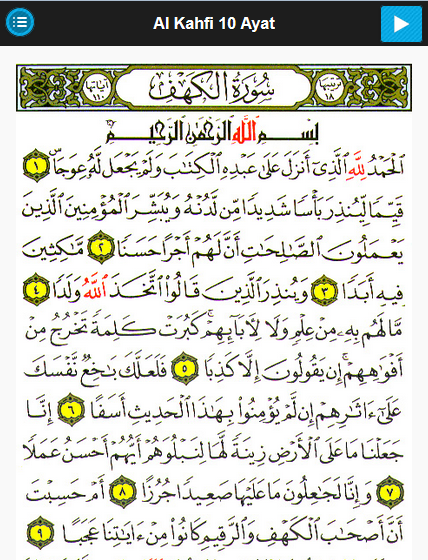 Al Kahfi 10 Ayat
آياتها ١١٠ سُورَةُ الْكَهْفِ ترتيبها ١٨
بِسْمِ اللَّهِ الرَّحْمَٰنِ الرَّحِيمِ
الْحَمْدُ لِلَّهِ الَّذِي أَنزَلَ عَلَىٰ عَبْدِهِ الْكِتَابَ وَلَمْ يَجْعَل لَّهُ عِوَجَا ۜ ١
قَيِّمًا لِّيُنذِرَ بَأْسًا شَدِيدًا مِّن لَّدُنْهُ وَيُبَشِّرَ الْمُؤْمِنِينَ الَّذِينَ
يَعْمَلُونَ الصَّالِحَاتِ أَنَّ لَهُمْ أَجْرًا حَسَنًا ٢ مَّاكِثِينَ
فِيهِ أَبَدًا ٣ وَيُنذِرَ الَّذِينَ قَالُوا اتَّخَذَ اللَّهُ وَلَدًا ٤
مَّا لَهُم بِهِ مِنْ عِلْمٍ وَلَا لِآبَائِهِمْ ۚ كَبُرَتْ كَلِمَةً تَخْرُجُ مِنْ
أَفْوَاهِهِمْ ۚ إِن يَقُولُونَ إِلَّا كَذِبًا ٥ فَلَعَلَّكَ بَاخِعٌ نَّفْسَكَ
عَلَىٰ ءَاثَارِهِمْ إِن لَّمْ يُؤْمِنُوا بِهَٰذَا الْحَدِيثِ أَسَفًا ٦ إِنَّا
جَعَلْنَا مَا عَلَى الْأَرْضِ زِينَةً لَّهَا لِنَبْلُوَهُمْ أَيُّهُمْ أَحْسَنُ عَمَلًا
٧ وَإِنَّا لَجَاعِلُونَ مَا عَلَيْهَا صَعِيدًا جُرُزًا ٨ أَمْ حَسِبْتَ
أَنَّ أَصْحَابَ الْكَهْفِ وَالرَّقِيمِ كَانُوا مِنْ ءَايَاتِنَا عَجَبًا ٩